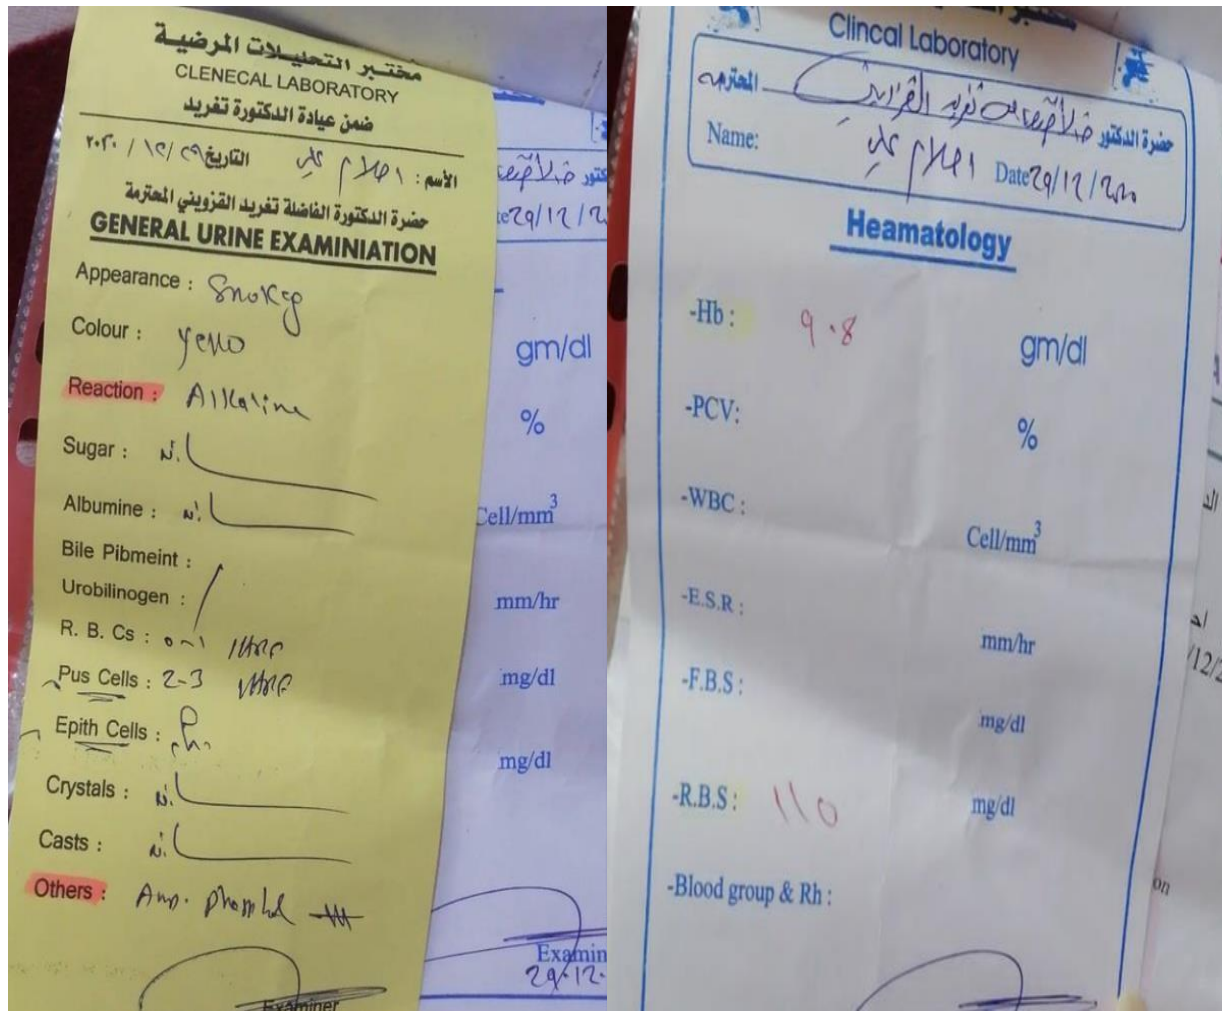 مختبر التحليلات المرضية
CLENECAL LABORATORY
ضمن عيادة الدكتورة تغريد
الأسم : احلام علي التاريخ ٢٩ / ١٢ / ٢٠٢٠
حضرة الدكتورة الفاضلة تغريد القزويني المحترمة
GENERAL URINE EXAMINIATION
Appearance : Smokey
Colour : yello
Reaction : Alkaline
Sugar : Nil
Albumine : Nil
Bile Pibmeint :
Urobilinogen :
R. B. Cs : 0-1 /HPF
Pus Cells : 2-3 /HPF
Epith Cells :
Crystals : Nil
Casts : Nil
Others : Amp. phosphat +++
Examiner
gm/dl
%
Cell/mm³
mm/hr
mg/dl
mg/dl
Examin
29.12.
Clincal Laboratory
حضرة الدكتور المحترم
Name: احلام علي Date 29/12/2020
Heamatology
-Hb : 9.8 gm/dl
-PCV: %
-WBC : Cell/mm³
-E.S.R : mm/hr
-F.B.S : mg/dl
-R.B.S : 110 mg/dl
-Blood group & Rh :
/12/2
on